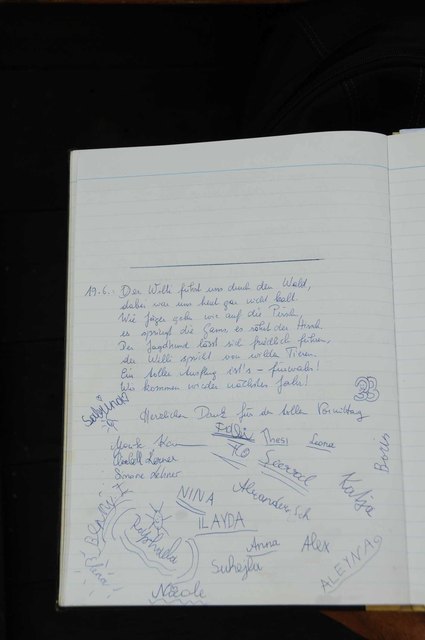 19.6.: Der Willi führt uns durch den Wald,
dabei war uns heut gar nicht kalt.
Wie Jäger gehn wir auf die Pirsch,
es springt die Gams, es röhrt der Hirsch.
Der Jagdhund lässt sich friedlich führen,
der Willi spricht von wilden Tieren.
Ein toller Ausflug ist's - fürwahr!
Wir kommen wieder nächstes Jahr!
Herzlichen Dank für den tollen Vormittag
Sabrina
Thesi
Leona
Boris
Elisabeth Kerner
Simone Lehner
Katja
NINA
Alexander
ILAYDA
BENNY
Raphaela
Anna
Alex
Elena
Suheyla
ALEYNA
Nicole